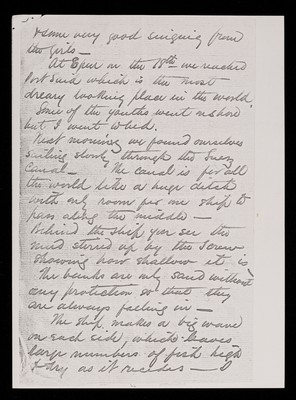 5
& some very good singing from
the girls —
At 6 pm on the 18th we reached
Port Said which is the most
dreary looking place in the world.
Some of the youths went ashore
but I went to bed.
Next morning we found ourselves
sailing slowly through the Suez
Canal — The canal is for all
the world like a huge ditch
with only room for one ship to
pass along the middle —
Behind the ship you see the
mud stirred up by the screw
showing how shallow it is
The banks are only sand without
any protection so that they
are always falling in —
The ship makes a big wave
on each side, which leaves
large numbers of fish high
& dry as it recedes — I